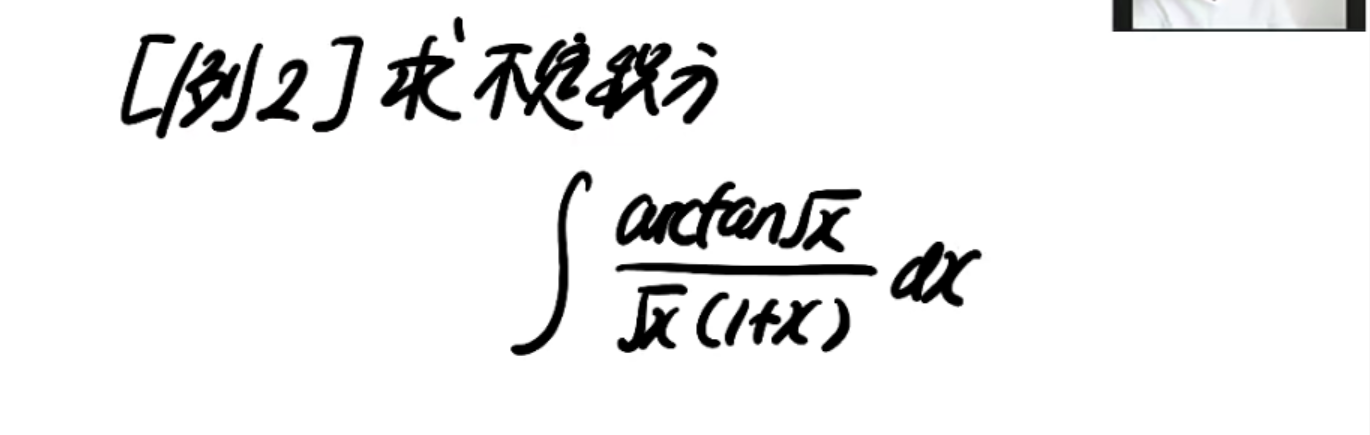 [例2] 求不定积分
∫ arctan√x / √x(1+x) dx